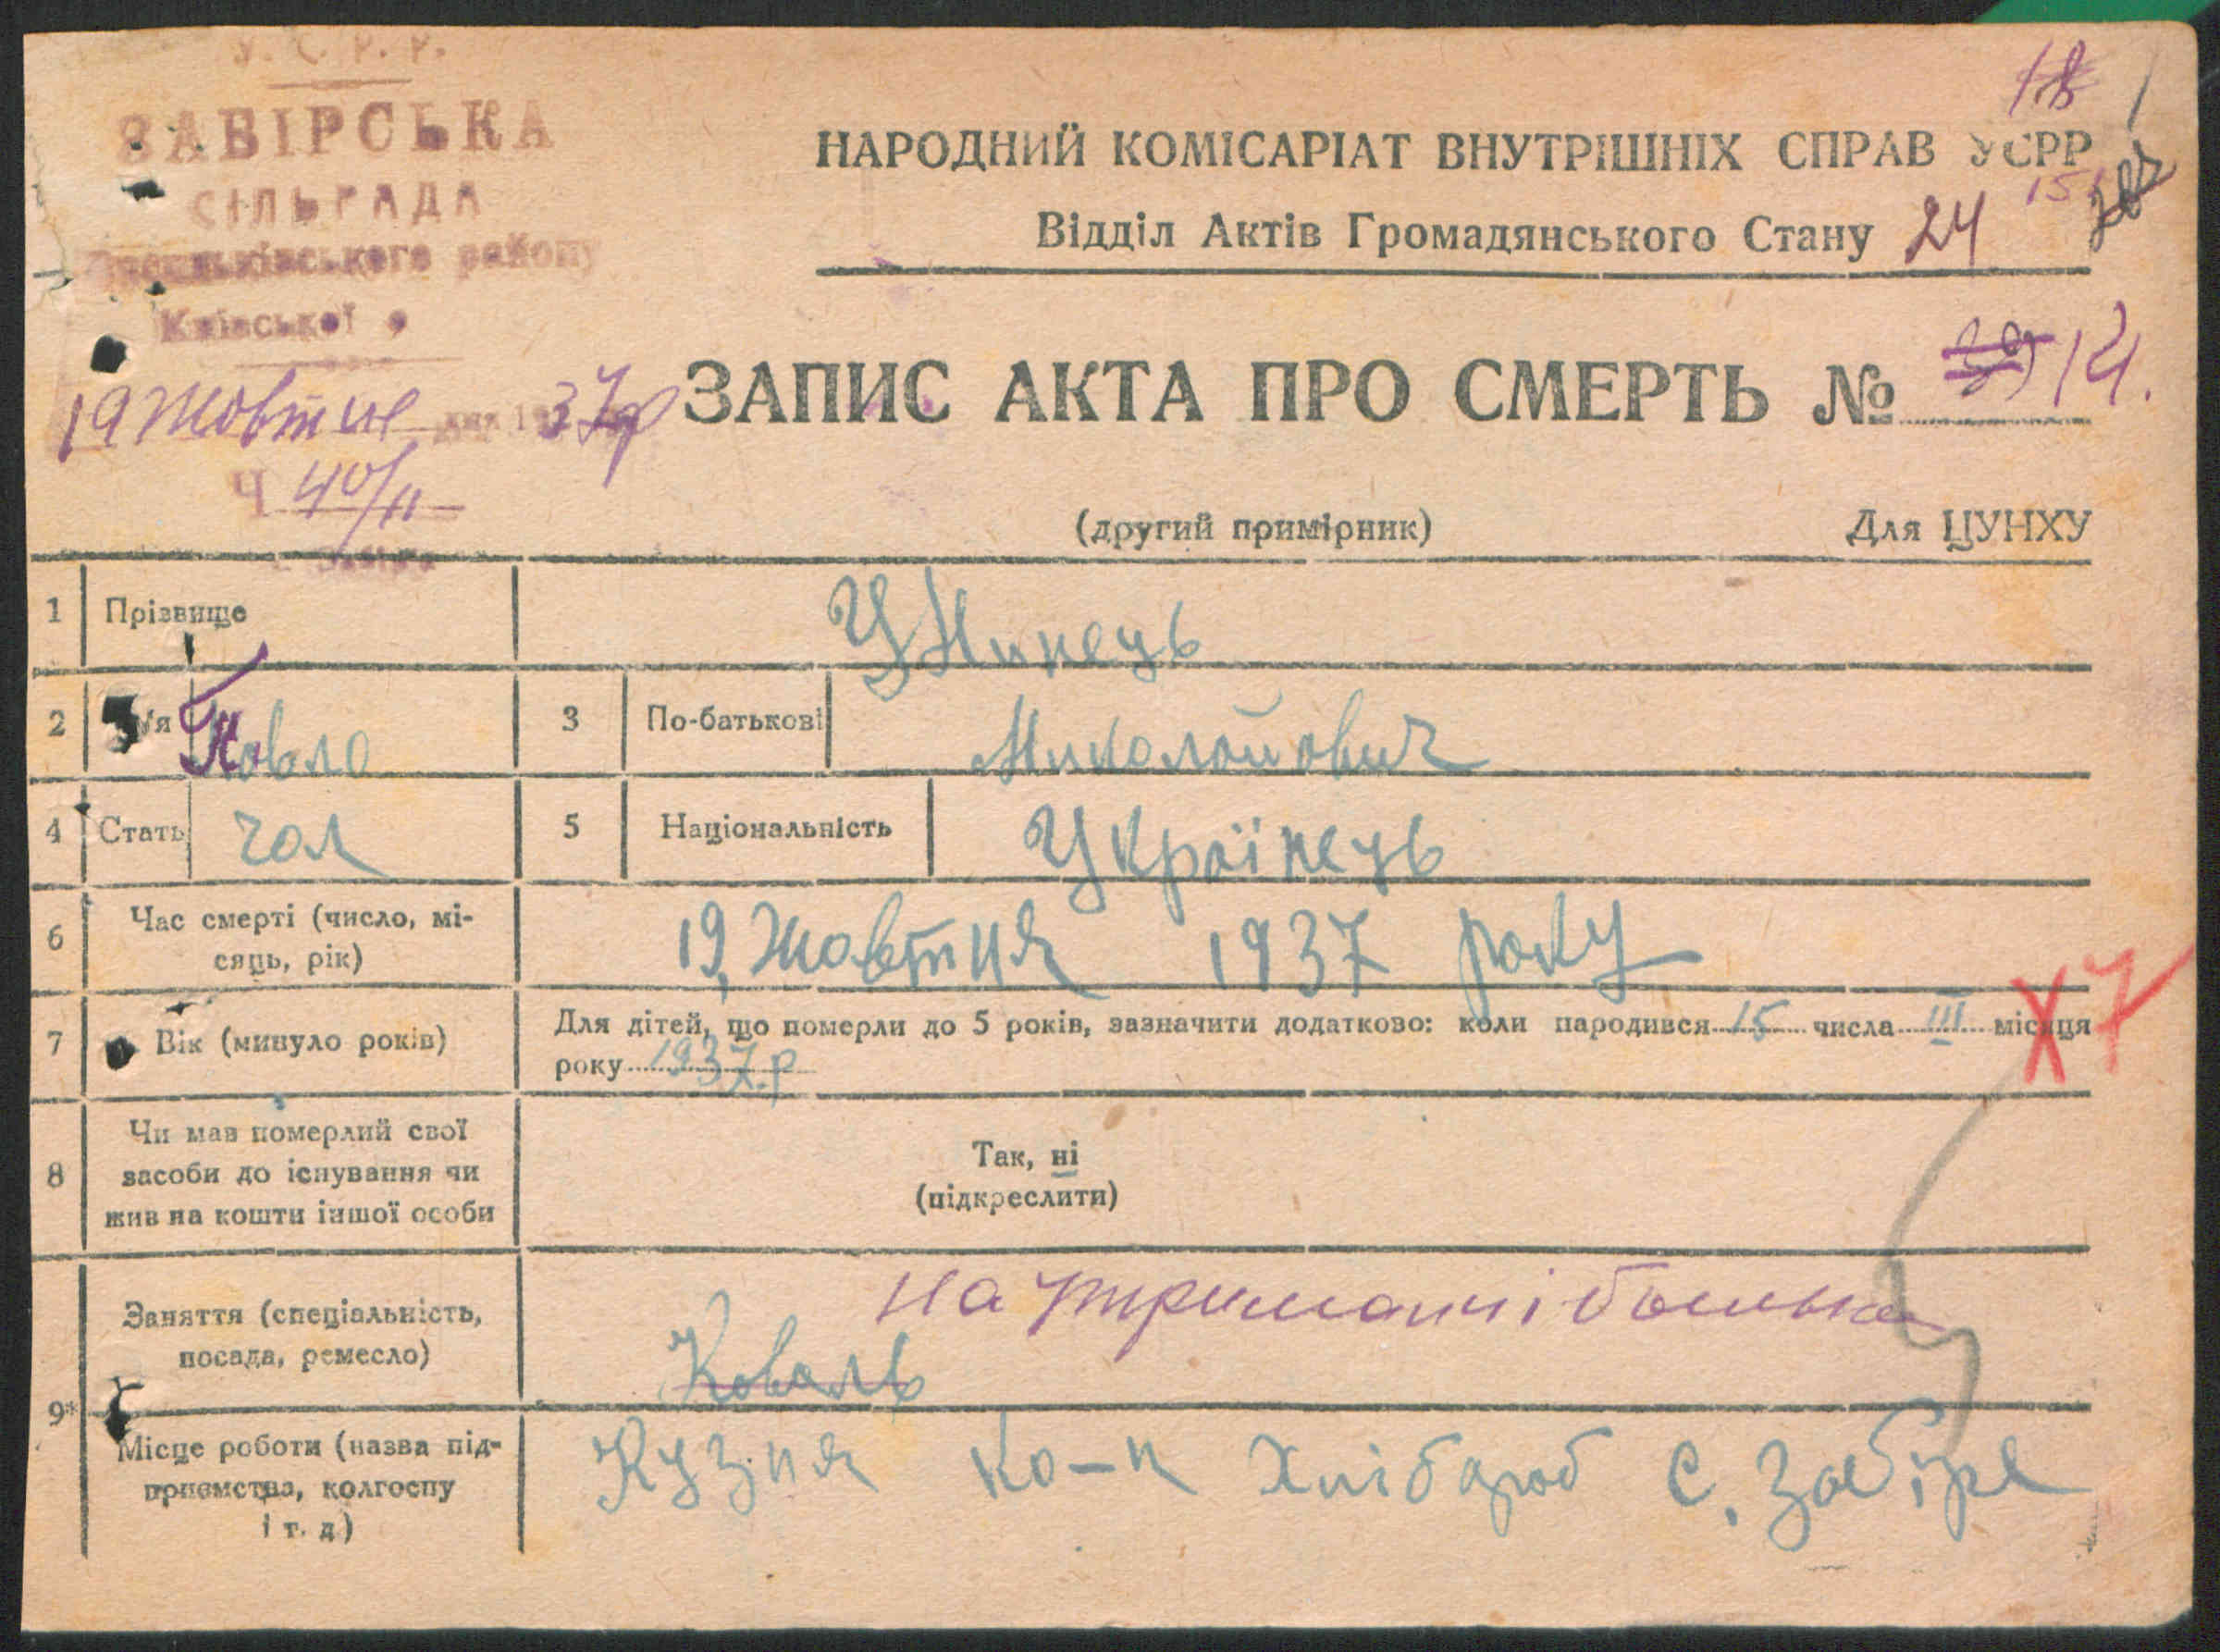 У. С. Р. Р.
ЗАВІРСЬКА
СІЛЬРАДА
району
Київської
19 жовтня дня 1937р
Ч 40/11
18
НАРОДНИЙ КОМІСАРІАТ ВНУТРІШНІХ СПРАВ УСРР
15
Відділ Актів Громадянського Стану 24
ЗАПИС АКТА ПРО СМЕРТЬ № 39 14.
(другий примірник) Для ЦУНХУ
1 Прізвище
2 Ім'я Павло 3 По-батькові Миколайович
4 Стать чол 5 Національність Українець
6 Час смерті (число, мі-
сяць, рік) 19, жовтня 1937 року
7 Вік (минуло років) Для дітей, що померли до 5 років, зазначити додатково: коли народився 15 числа III місяця
року 1937.р
X 7
8 Чи мав померлий свої
засоби до існування чи
жив на кошти іншої особи
Так, ні
(підкреслити)
9* Заняття (спеціальність,
посада, ремесло)
на утриманні батька
Коваль
Місце роботи (назва під-
приємства, колгоспу
і т. д)
Кузня ко-п Хлібороб с. Завіря